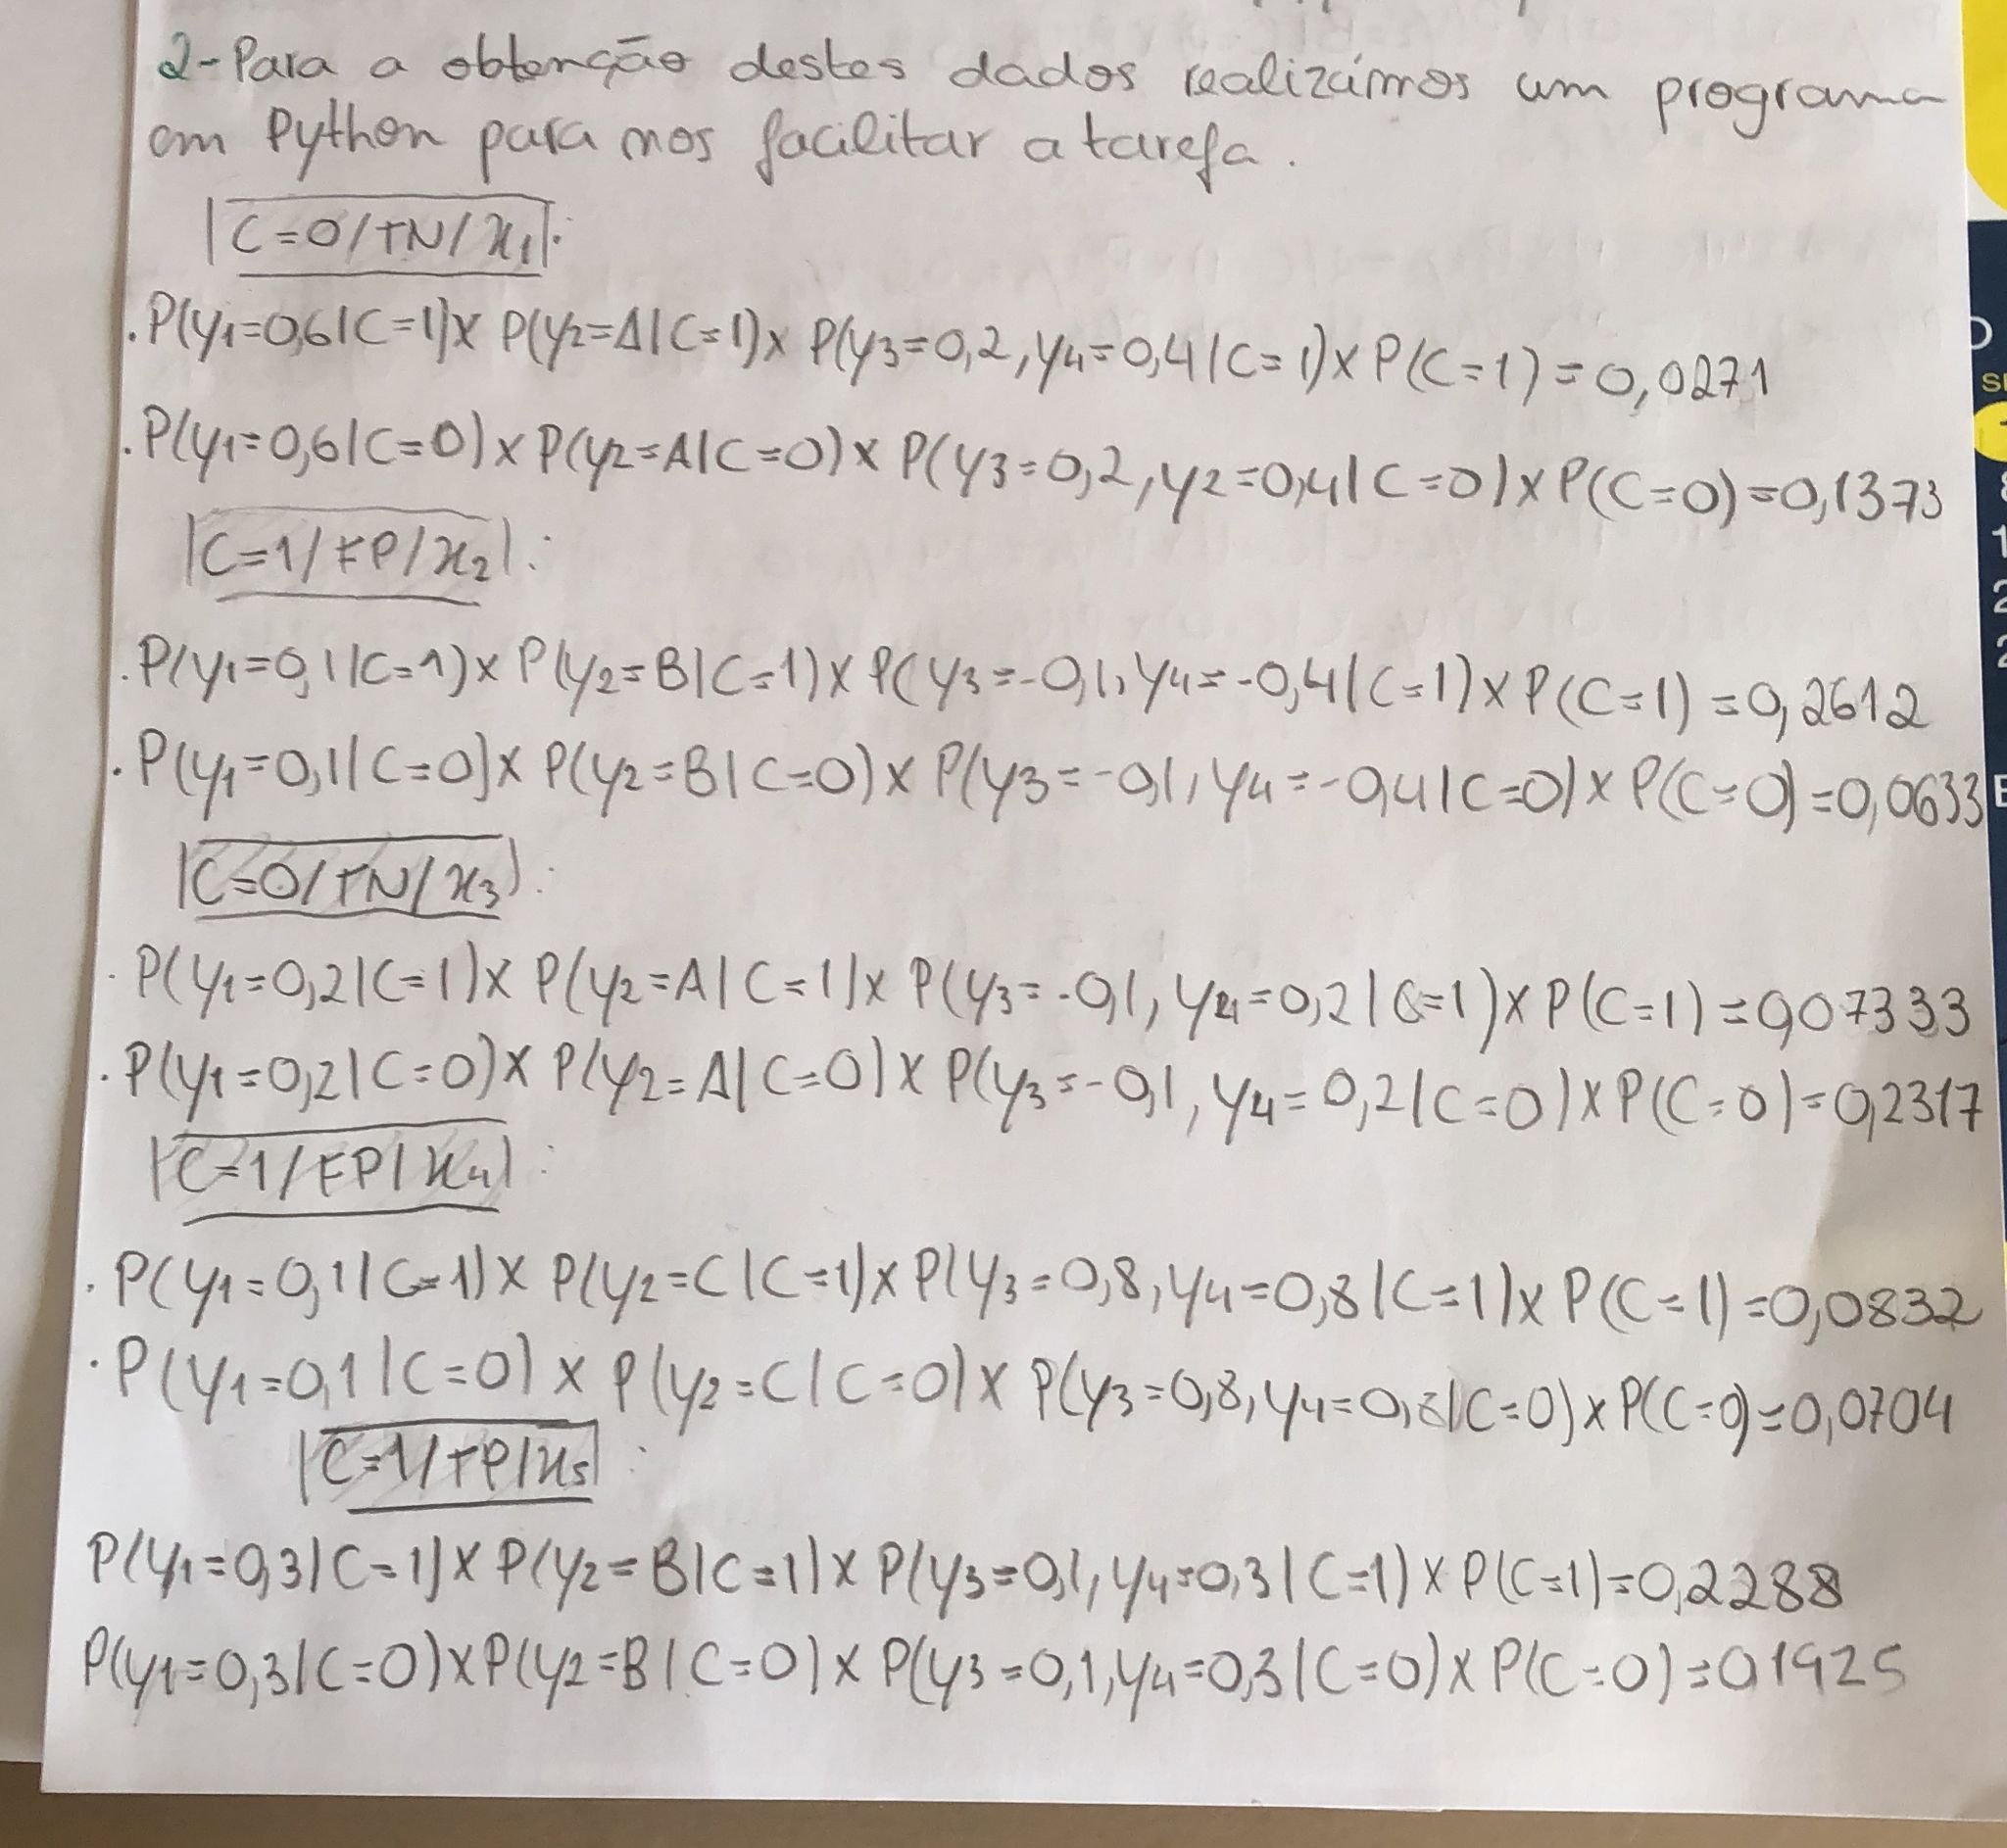 2-Para a obtenção destes dados realizámos um programa
em Python para nos facilitar a tarefa.
|C=0/TN/x1|:
.P(y1=0,6|C=1)x P(y2=A|C=1)x P(y3=0,2,y4=0,4|C=1)x P(C=1)=0,0271
.P(y1=0,6|C=0)x P(y2=A|C=0)x P(y3=0,2,y2=0,4|C=0)x P(C=0)=0,1373
|C=1/FP/x2|:
.P(y1=0,1|C=1)x P(y2=B|C=1)x P(y3=-0,1,y4=-0,4|C=1)x P(C=1)=0,2612
.P(y1=0,1|C=0)x P(y2=B|C=0)x P(y3=-0,1,y4=-0,4|C=0)x P(C=0)=0,0633
|C=0/TN/x3|:
.P(y1=0,2|C=1)x P(y2=A|C=1)x P(y3=-0,1,y4=0,2|C=1)x P(C=1)=0,07333
.P(y1=0,2|C=0)x P(y2=A|C=0)x P(y3=-0,1,y4=0,2|C=0)x P(C=0)=0,2317
|C=1/FP/x4|:
.P(y1=0,1|C=1)x P(y2=C|C=1)x P(y3=0,8,y4=0,8|C=1)x P(C=1)=0,0832
.P(y1=0,1|C=0)x P(y2=C|C=0)x P(y3=0,8,y4=0,8|C=0)x P(C=0)=0,0704
|C=1/TP/x5|:
P(y1=0,3|C=1)x P(y2=B|C=1)x P(y3=0,1,y4=0,3|C=1)x P(C=1)=0,2288
P(y1=0,3|C=0)x P(y2=B|C=0)x P(y3=0,1,y4=0,3|C=0)x P(C=0)=0,1925